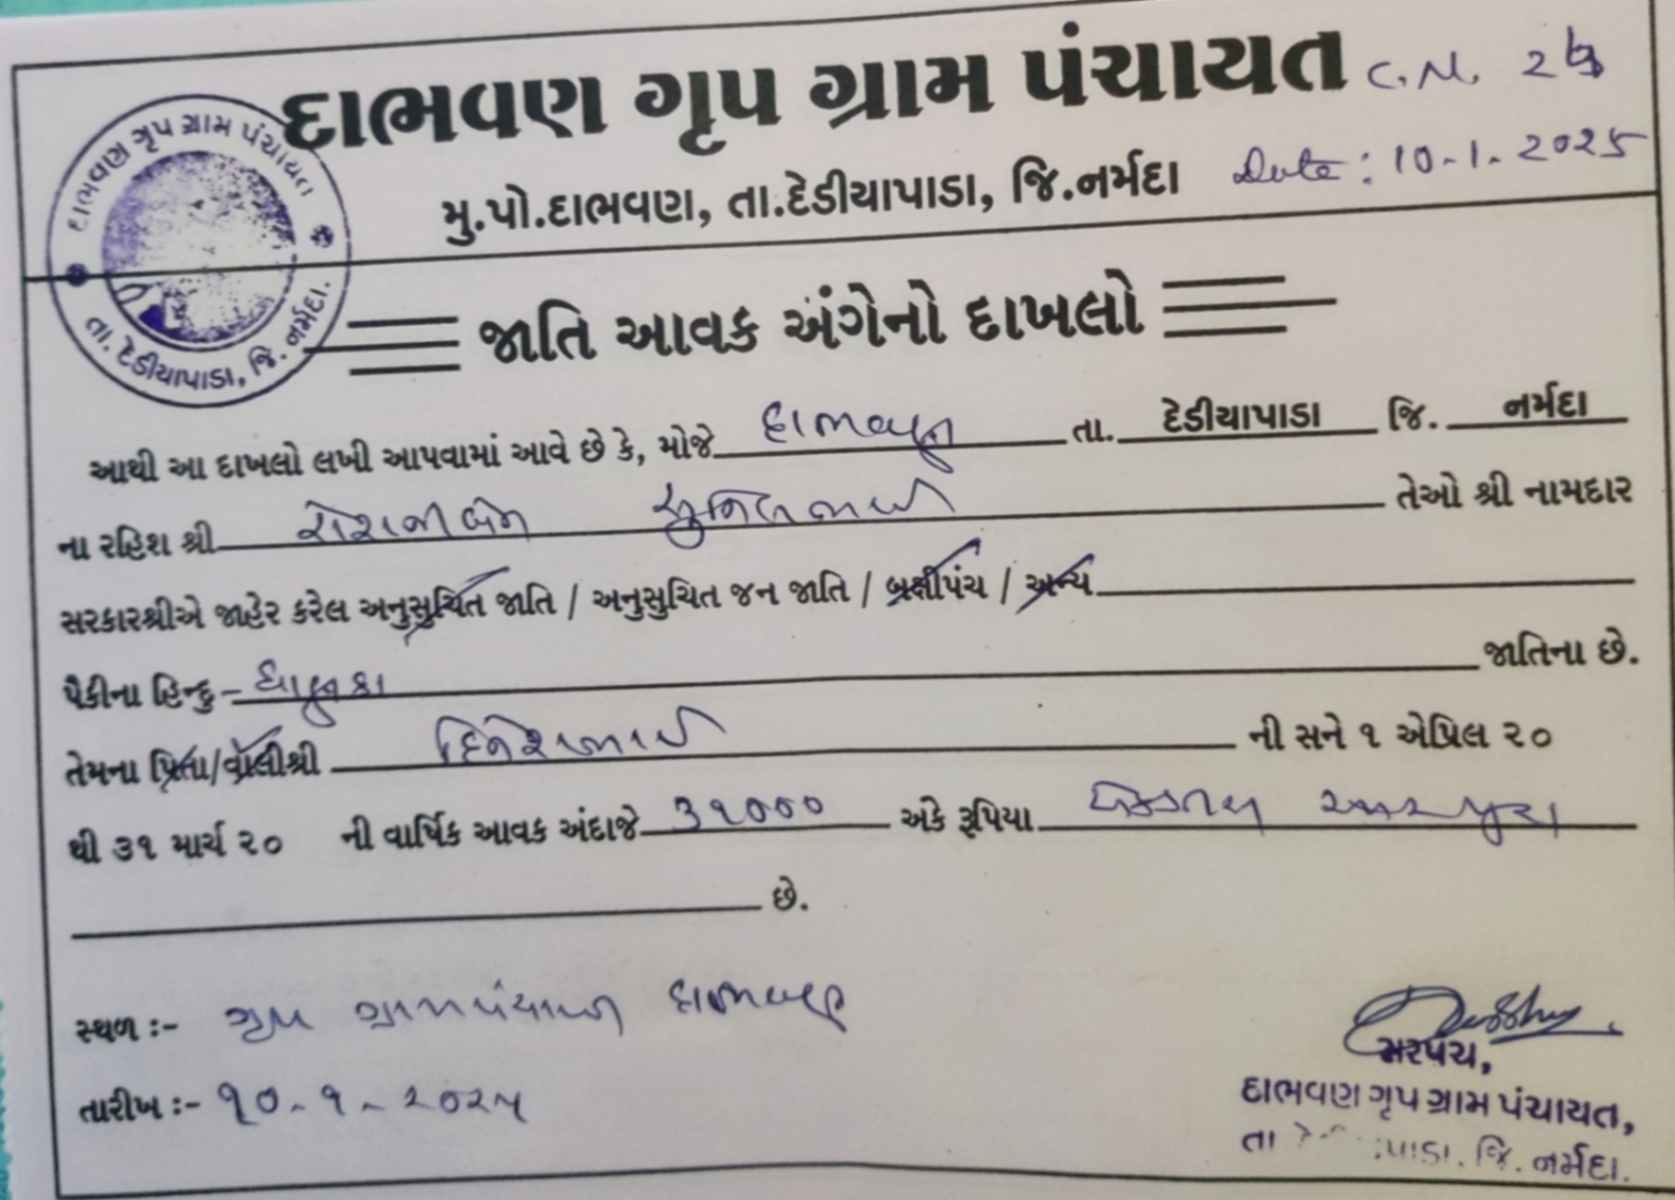 દાભવણ ગૃપ ગ્રામ પંચાયત C.N. 2
મુ.પો.દાભવણ, તા.દેડીયાપાડા, જિ.નર્મદા Date : 10-1-2025
દાભવણ ગૃપ ગ્રામ પંચાયત
તા. દેડીયાપાડા, જિ. નર્મદા.
જાતિ આવક અંગેનો દાખલો
આથી આ દાખલો લખી આપવામાં આવે છે કે, મોજે દાભવણ તા. દેડીયાપાડા જિ. નર્મદા
ના રહિશ શ્રી રોશનીબેન સુનિલભાઈ તેઓ શ્રી નામદાર
સરકારશ્રીએ જાહેર કરેલ અનુસુચિત જાતિ / અનુસુચિત જન જાતિ / બક્ષીપંચ / અન્ય
પૈકીના હિન્દુ - ધાણકા જાતિના છે.
તેમના પિતા/વાલીશ્રી દિનેશભાઈ ની સને ૧ એપ્રિલ ૨૦
થી ૩૧ માર્ચ ૨૦ ની વાર્ષિક આવક અંદાજે ૩૧૦૦૦ અંકે રૂપિયા પુરા
છે.
સ્થળ :- ગૃપ ગ્રામપંચાયત દાભવણ
તારીખ :- ૧૦-૧-૨૦૨૫
સરપંચ,
દાભવણ ગૃપ ગ્રામ પંચાયત,
તા પાડા. જિ. નર્મદા.